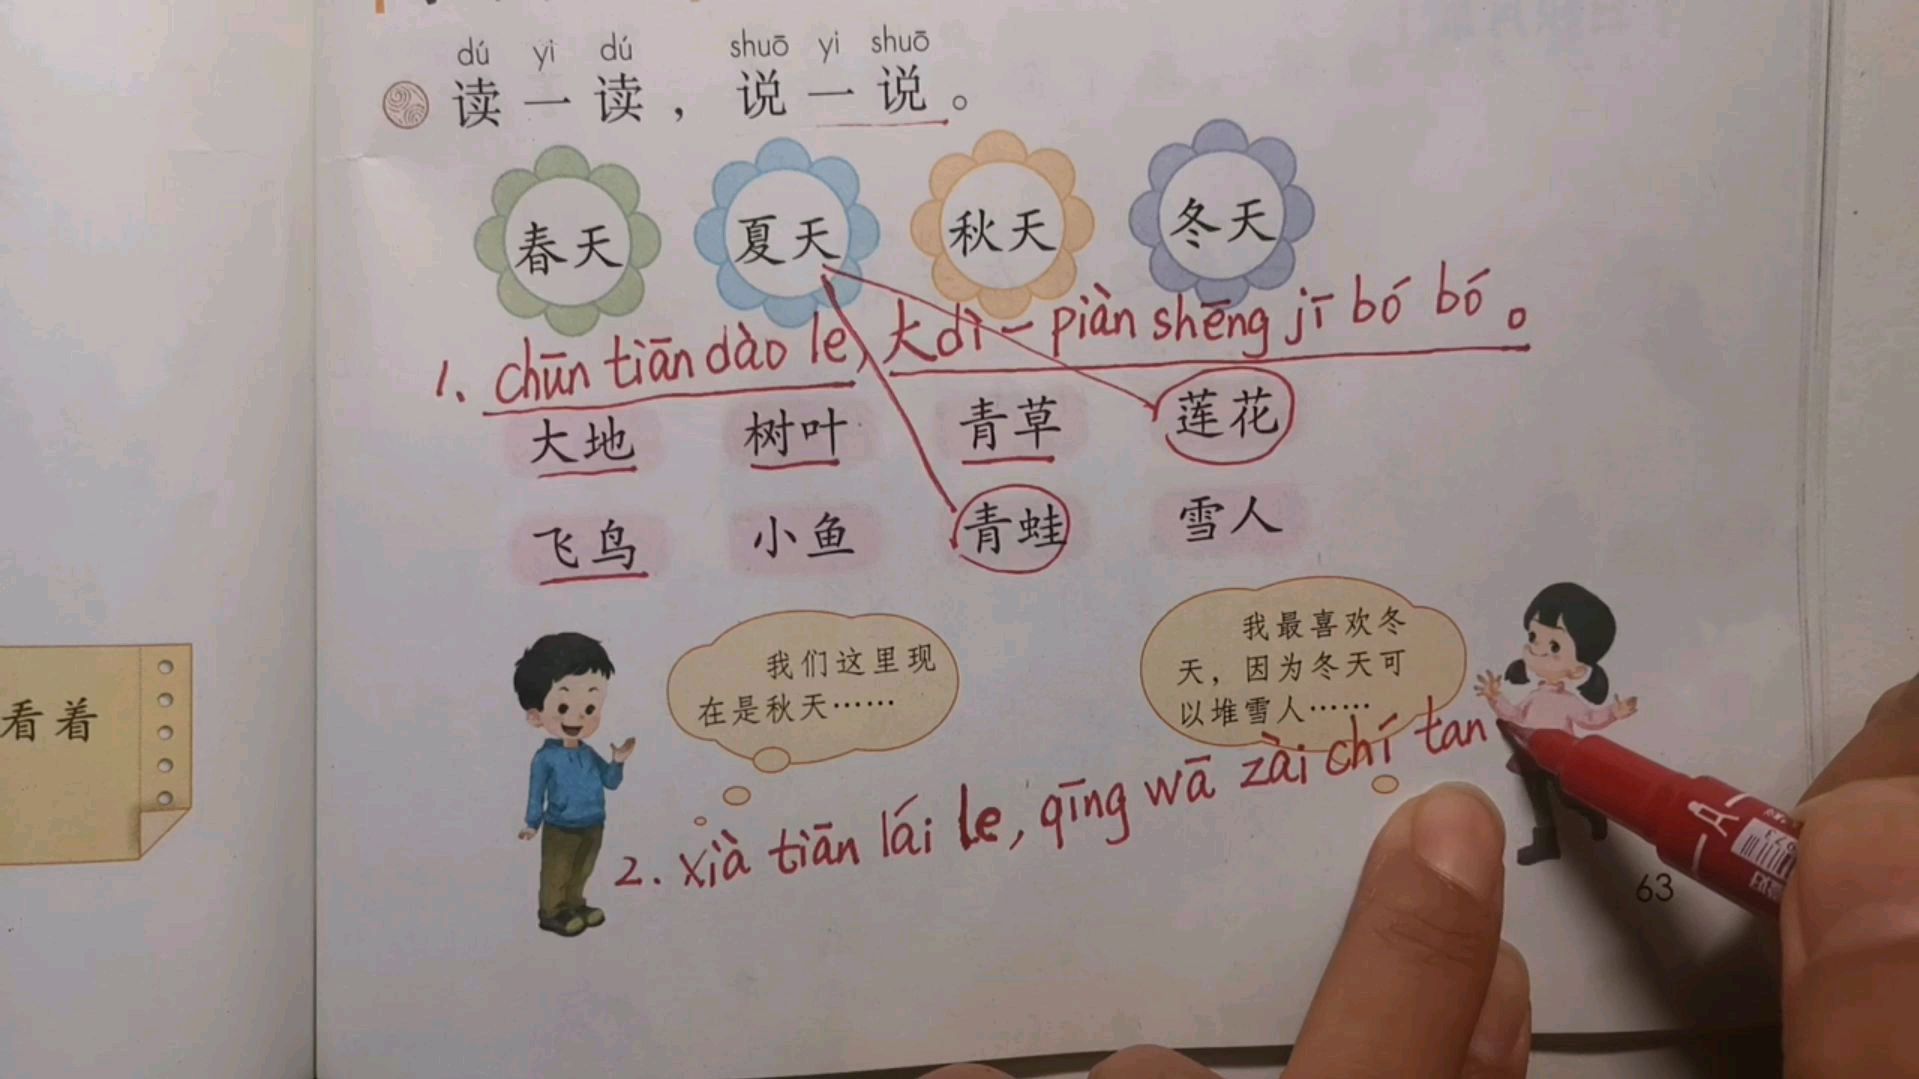 dú yi dú shuō yi shuō
读一读，说一说。
春天 夏天 秋天 冬天
1、chūn tiān dào le，大dì一piàn shēng jī bó bó。
大地 树叶 青草 莲花
飞鸟 小鱼 青蛙 雪人
我们这里现
在是秋天……
我最喜欢冬
天，因为冬天可
以堆雪人……
看着
2. xià tiān lái le, qīng wā zài chí tan
63